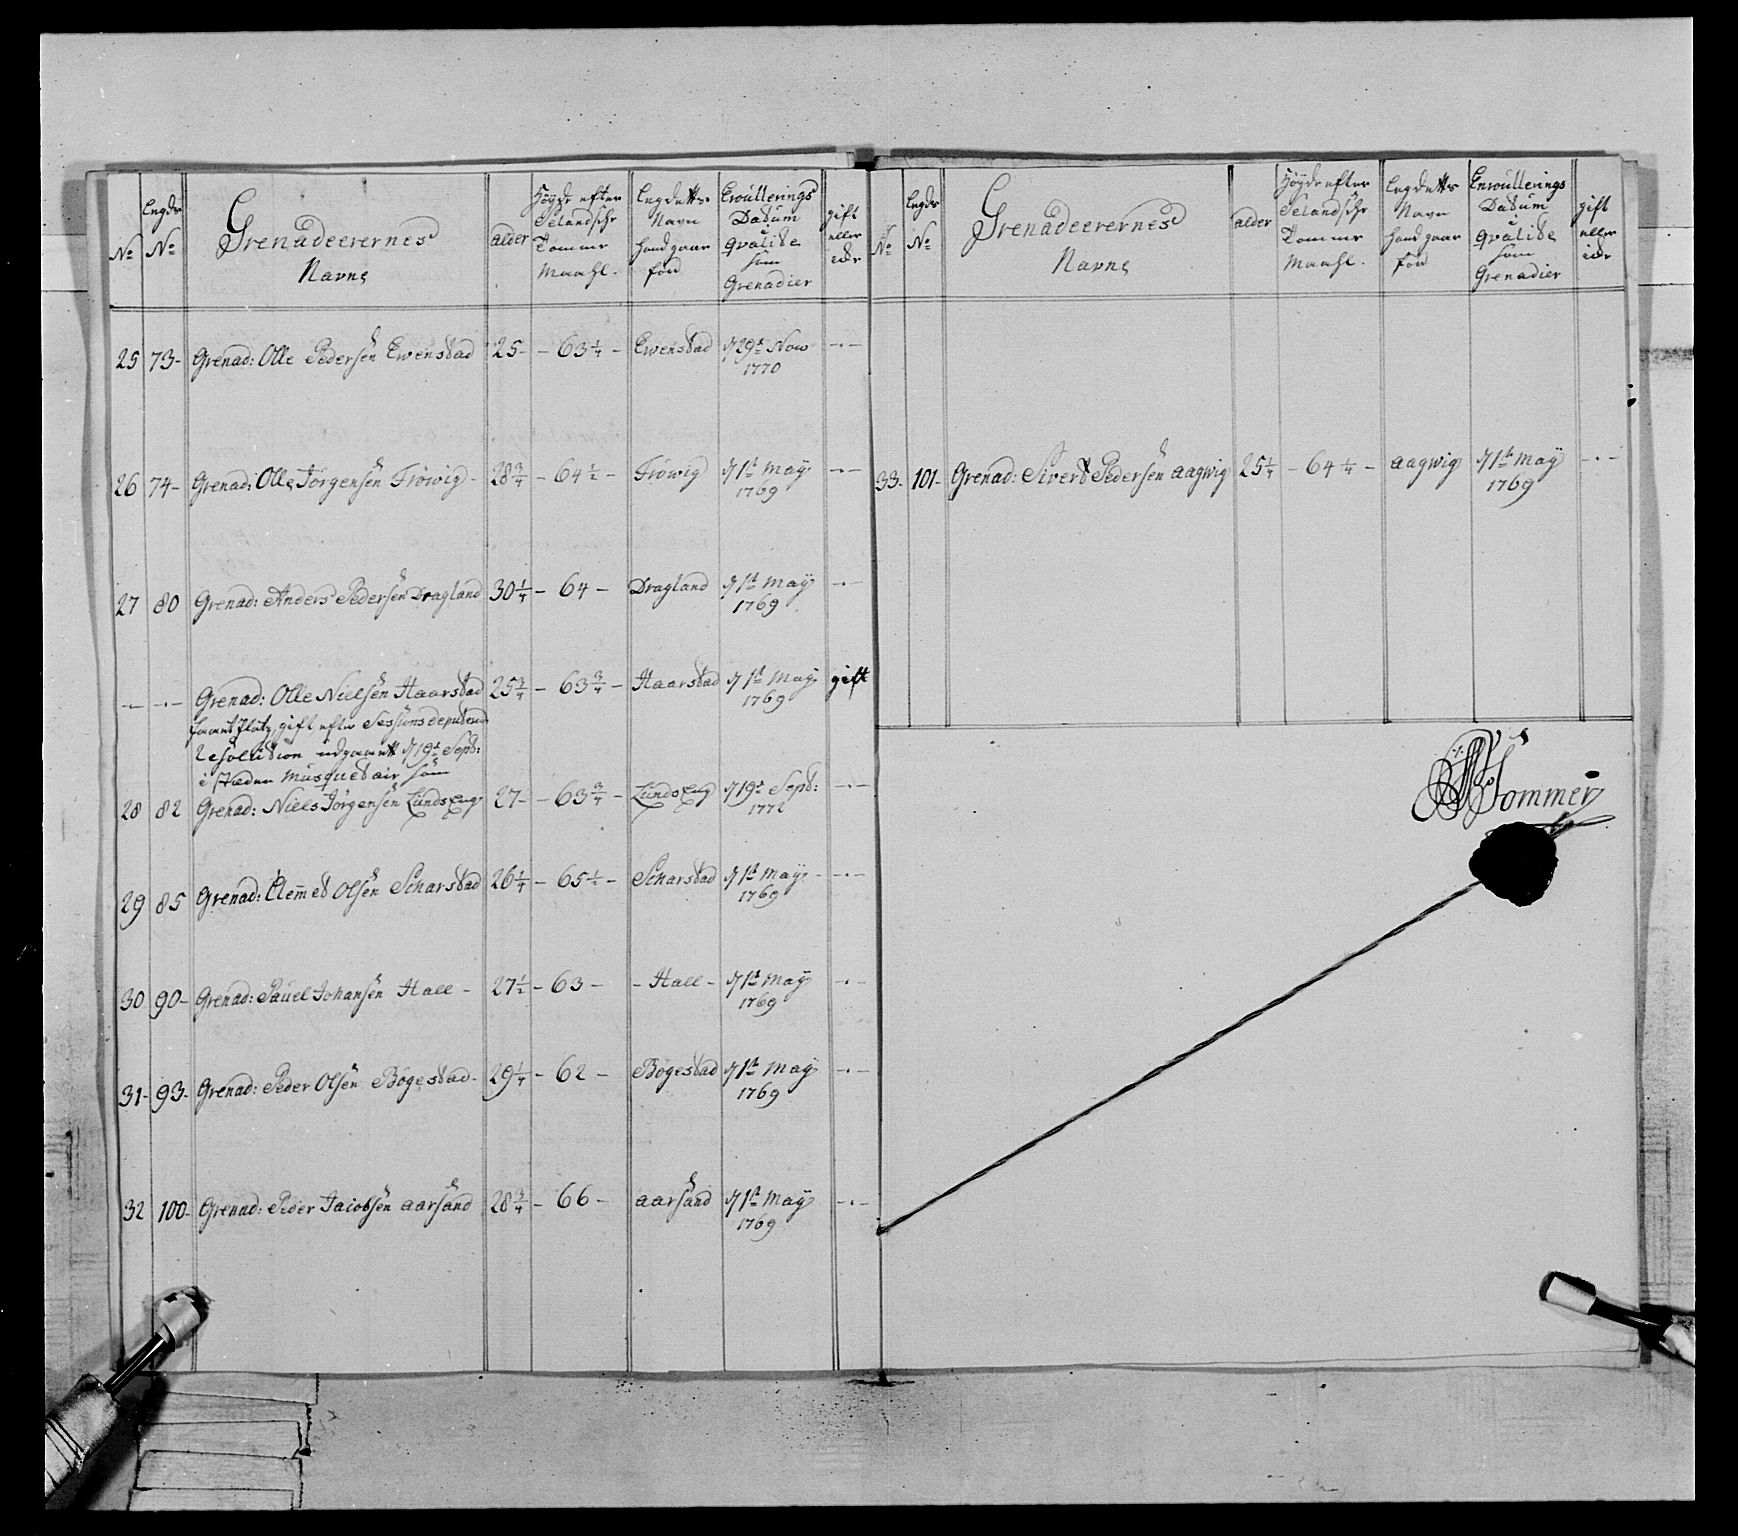 No
Legds No
Grenadeerernes
Navne
alder
Höyde efter
Selandske
Tomme
Maahl.
Legdetts
Navn
hand gaar
for
Enroullerings
Datum
i
Qvalite
som
Grenadier
gift
eller
eÿ
25 73- Grenad: Olle Pedersen Ewenstad 25- - 63 1/4 - Ewenstad d 29t Now -.-
1770
26 74- Grenad: Olle Jörgensen Fröwig - 28 3/4 - 64 1/2 - Fröwig d 1t Maÿ -.-
1769
27 80 Grenad: Anders Pedersen Dragland 30 1/4 - 64 - Dragland d 1t Maÿ -.-
1769
-.- -.- Grenad: Olle Nielsen Haarstad 25 3/4 - 63 3/4 - Haarstad d 1t Maÿ gift
1769
gift efter Sessions
Resolution udgaaett d 19t Sept:
i stæden Musquetair som
28 82 Grenad: Niels Jörgensen Lunds Eng 27- - 63 3/4 - Lunds Eng d 19t Sept: -.-
1772
29 85 Grenad: Clemet Olsen Scharstad 26 1/4 - 65 1/2 - Scharstad d 1t Maÿ -.-
1769
30 90- Grenad: Pauel Johansen Hall - 27 1/2 - 63 - - Hall - d 1t Maÿ -.-
1769
31- 93- Grenad: Peder Olsen Bögestad- 29 1/4 - 62 - Bögestad d 1t Maÿ -.-
1769
32 100- Grenad: Peder Jacobsen aarsand 28 3/4 - 66 - aarsand d 1t Maÿ -.-
1769
No
Legds No
Grenadeerernes
Navne
alder
Höyde efter
Selandske
Tomme
Maahl.
Legdetts
Navn
hand gaar
for
Enroullerings
Datum
i
Qvalite
som
Grenadier
gift
eller
eÿ
33- 101- Grenad: Sivert Pedersen aagwig 25 1/4 - 64 1/4 - aagwig d 1t Maÿ -.-
1769
Sommer